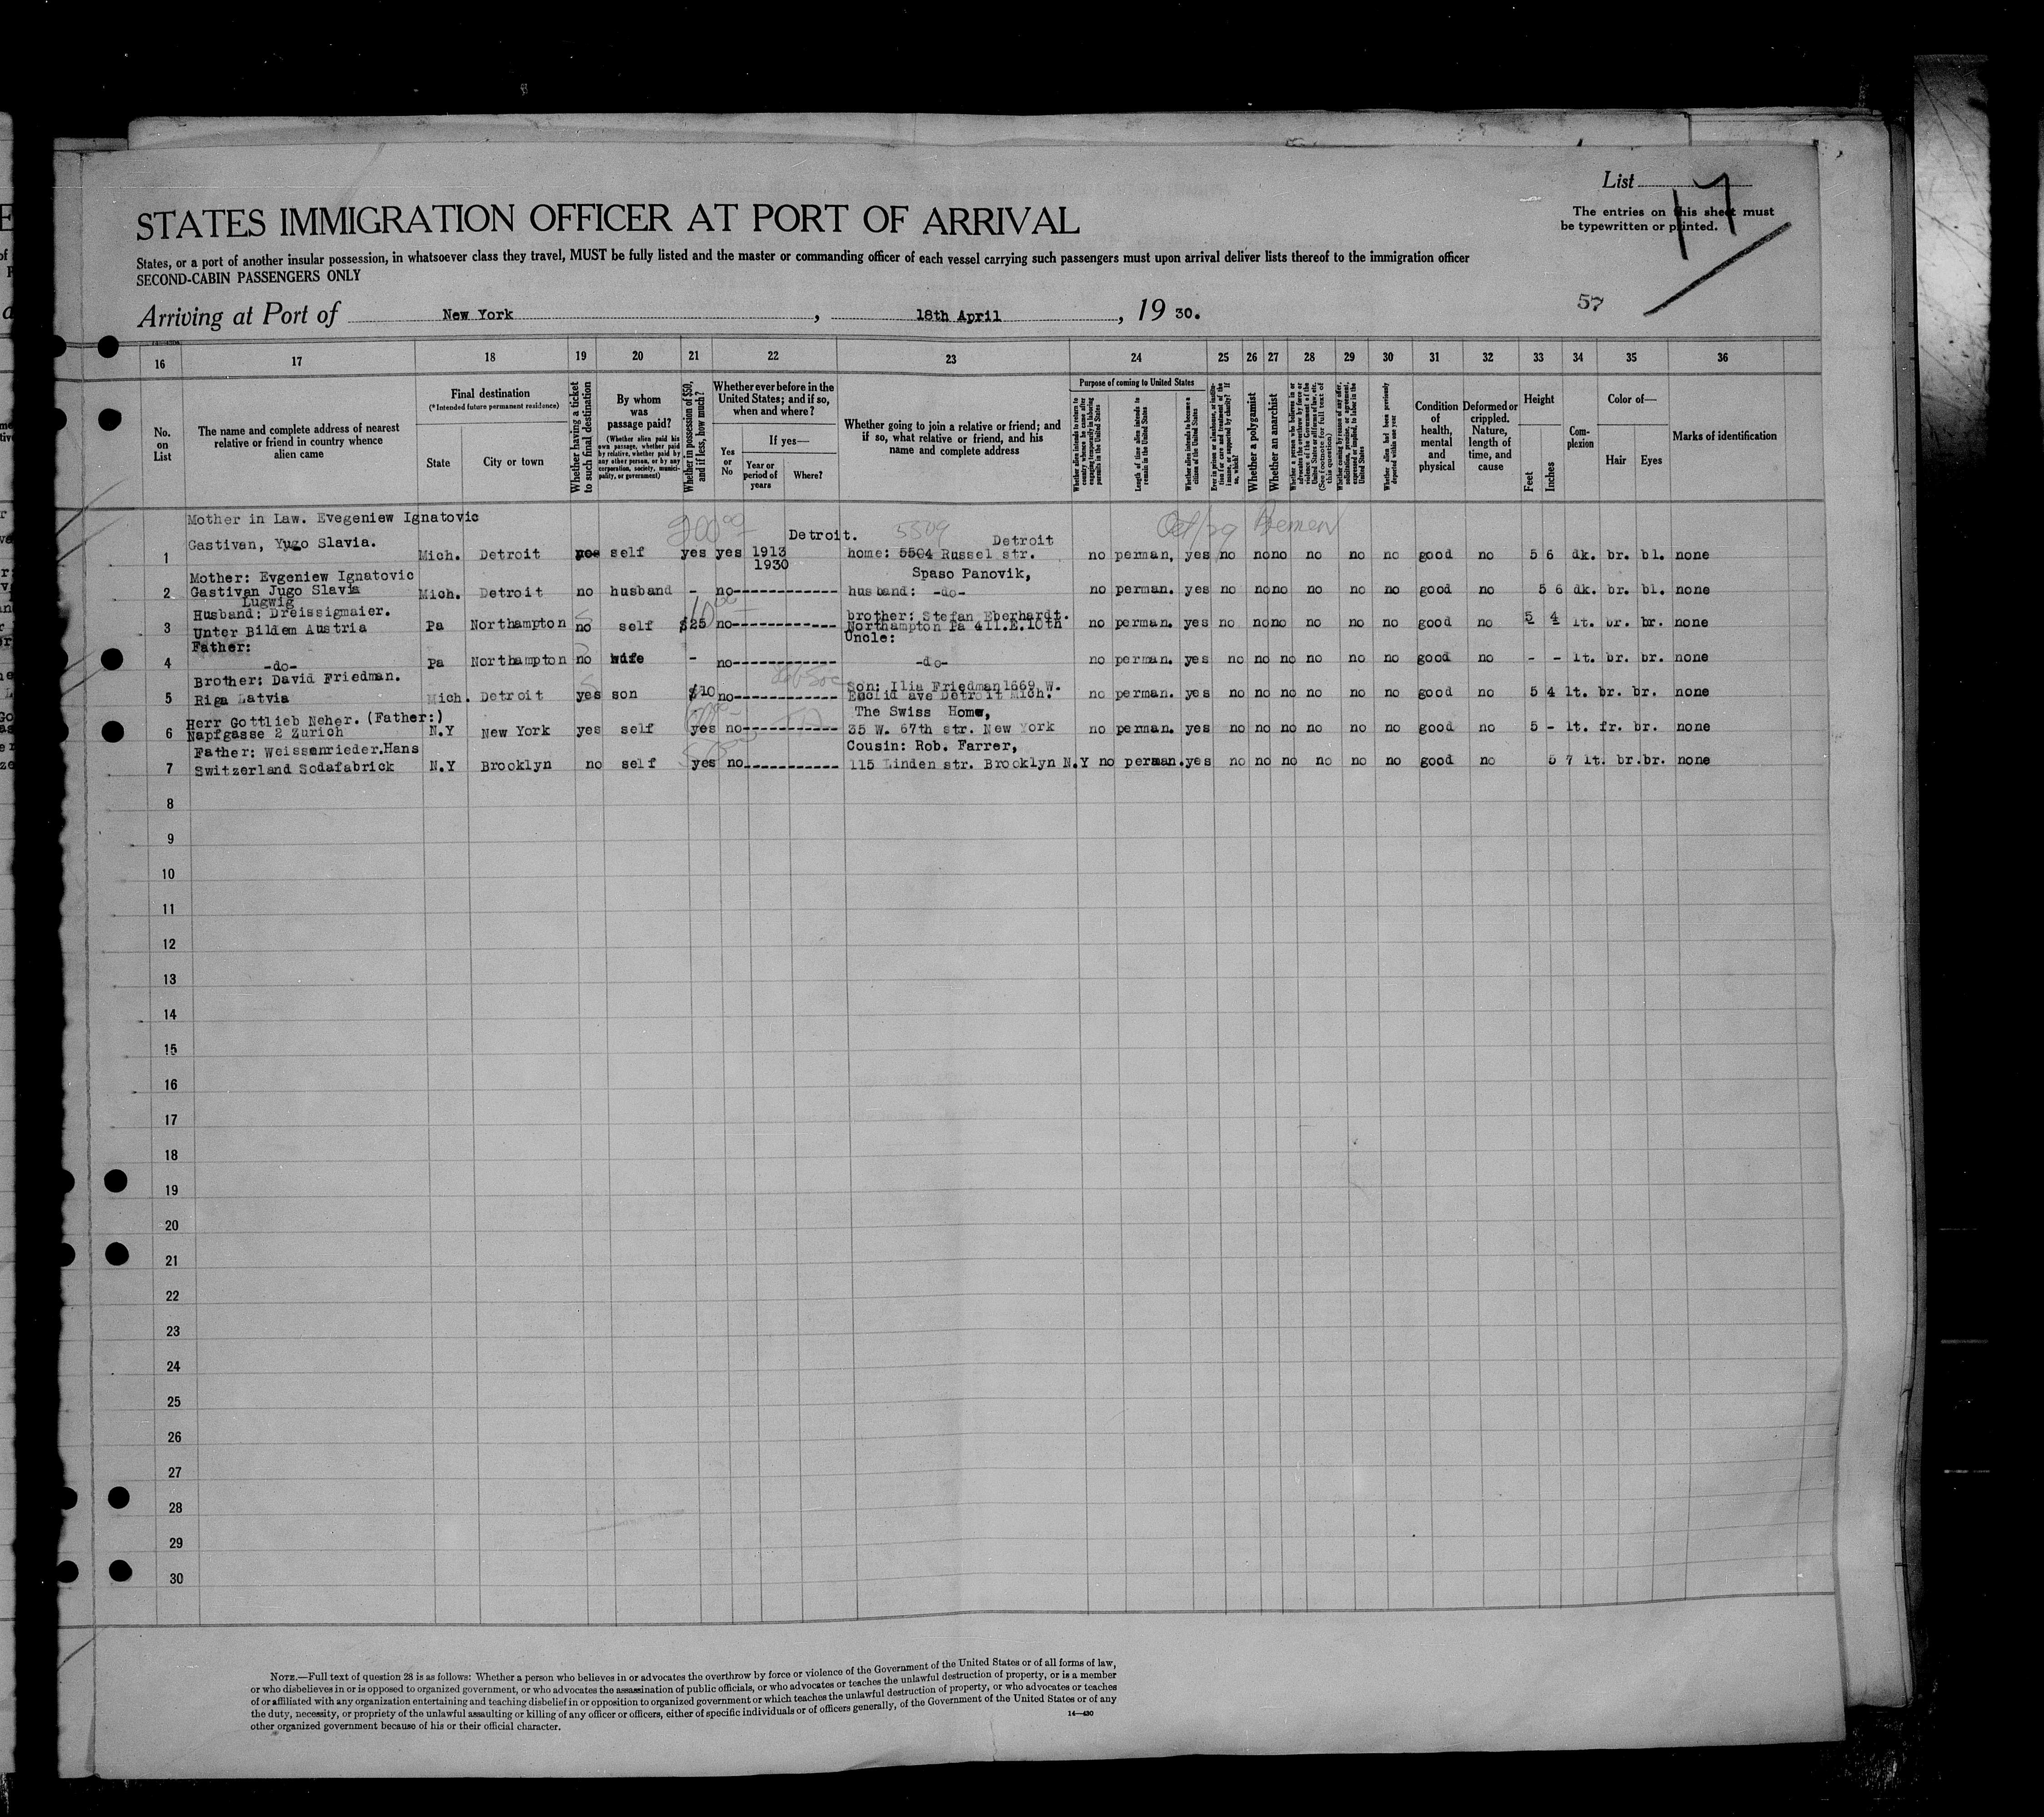 List 17
The entries on this sheet must
be typewritten or printed.
STATES IMMIGRATION OFFICER AT PORT OF ARRIVAL
States, or a port of another insular possession, in whatsoever class they travel, MUST be fully listed and the master or commanding officer of each vessel carrying such passengers must upon arrival deliver lists thereof to the immigration officer
SECOND-CABIN PASSENGERS ONLY
57
Arriving at Port of New York, 18th April, 19 30.
16 17 18 19 20 21 22 23 24 25 26 27 28 29 30 31 32 33 34 35 36
No. on List
The name and complete address of nearest relative or friend in country whence alien came
Final destination
(*Intended future permanent residence)
State
City or town
Whether having a ticket to such final destination
By whom was passage paid?
(Whether alien paid his own passage, whether paid by relative, whether paid by any other person, or by any corporation, society, municipality, or government)
Whether in possession of $50, and if less, how much?
Whether ever before in the United States; and if so, when and where?
Yes or No
If yes—
Year or period of years
Where?
Whether going to join a relative or friend; and if so, what relative or friend, and his name and complete address
Purpose of coming to United States
Whether alien intends to return to country whence he came after engaging temporarily in laboring pursuits in the United States
Length of time alien intends to remain in the United States
Whether alien intends to become a citizen of the United States
Ever in prison or almshouse, or institution for care and treatment of the insane, or supported by charity? If so, which?
Whether a polygamist
Whether an anarchist
Whether coming by reason of any offer, solicitation, promise, or agreement, expressed or implied, to labor in the United States
Whether alien had been previously deported within one year
Condition of health, mental and physical
Deformed or crippled. Nature, length of time, and cause
Height
Feet
Inches
Complexion
Color of—
Hair
Eyes
Marks of identification
Mother in Law. Evegeniew Ignatovic
200 00 Detroit. 5509 Detroit Oct/29 Bremen
Gastivan, Yugo Slavia.
1 Mich. Detroit self yes yes 1913 home: 5504 Russel str. no perman, yes no no no no no no good no 5 6 dk. br. bl. none
1930
Mother: Evgeniew Ignatovic Spaso Panovik,
2 Gastivan Jugo Slavia Mich. Detroit no husband - no------------- husband: -do- no perman. yes no no no no no no good no 5 6 dk. br. bl. none
Lugwig
Husband: Dreissigmaier. brother: Stefan Eberhardt.
3 Unter Bildem Austria Pa Northampton no self $25 no------------- Northampton Pa 411.E.10th no perman. yes no no no no no no good no 5 4 lt. br. br. none
Father: Uncle:
4 -do- Pa Northampton no wife - no------------- -do- no perman. yes no no no no no no good no - - lt. br. br. none
Brother: David Friedman. Son: Ilia Friedman 1669 W.
5 Riga Latvia Mich. Detroit yes son $10 no------------- Euclid ave Detroit Mich. no perman. yes no no no no no no good no 5 4 lt. br. br. none
Herr Gottlieb Neher. (Father:) The Swiss Home,
6 Napfgasse 2 Zurich N.Y New York yes self yes no------------- 35 W. 67th str. New York no perman. yes no no no no no no good no 5 - lt. fr. br. none
Father: Weissenrieder.Hans Cousin: Rob. Farrer,
7 Switzerland Sodafabrick N.Y Brooklyn no self yes no------------- 115 Linden str. Brooklyn N.Y no perman.yes no no no no no no good no 5 7 lt. br.br. none
8
9
10
11
12
13
14
15
16
17
18
19
20
21
22
23
24
25
26
27
28
29
30
NOTE.—Full text of question 28 is as follows: Whether a person who believes in or advocates the overthrow by force or violence of the Government of the United States or of all forms of law,
or who disbelieves in or is opposed to organized government, or who advocates the assassination of public officials, or who advocates or teaches the unlawful destruction of property, or is a member
of or affiliated with any organization entertaining and teaching disbelief in or opposition to organized government or which teaches the unlawful destruction of property, or who advocates or teaches
the duty, necessity, or propriety of the unlawful assaulting or killing of any officer or officers, either of specific individuals or of officers generally, of the Government of the United States or of any
other organized government because of his or their official character.
14—430